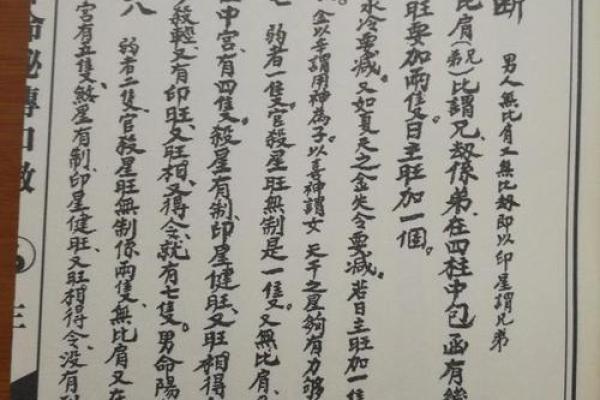 断
男人無比肩又無比劫即以印星謂兄弟
比肩(兄弟)比謂兄、劫係弟、在四柱中包函有幾
旺要加兩隻日主旺加一個。
水冷要減。又如夏天之金失令要減。若日主旺加一隻
金以辛謂用神為子以喜神謂女 天干之星夠有力夠
弱者一隻、官殺星旺無制是一隻。又無比肩、
中宮、有四隻。殺星有制、印星健旺、又旺相得
殺輕、又有印旺、又旺相、又得令、就有七隻。男命陽
八 弱者二隻、官殺星旺無制係兩隻、無比肩又在
宮有五隻、煞星有制、印星健旺、又旺相得令、沒有
命秘傳口
三